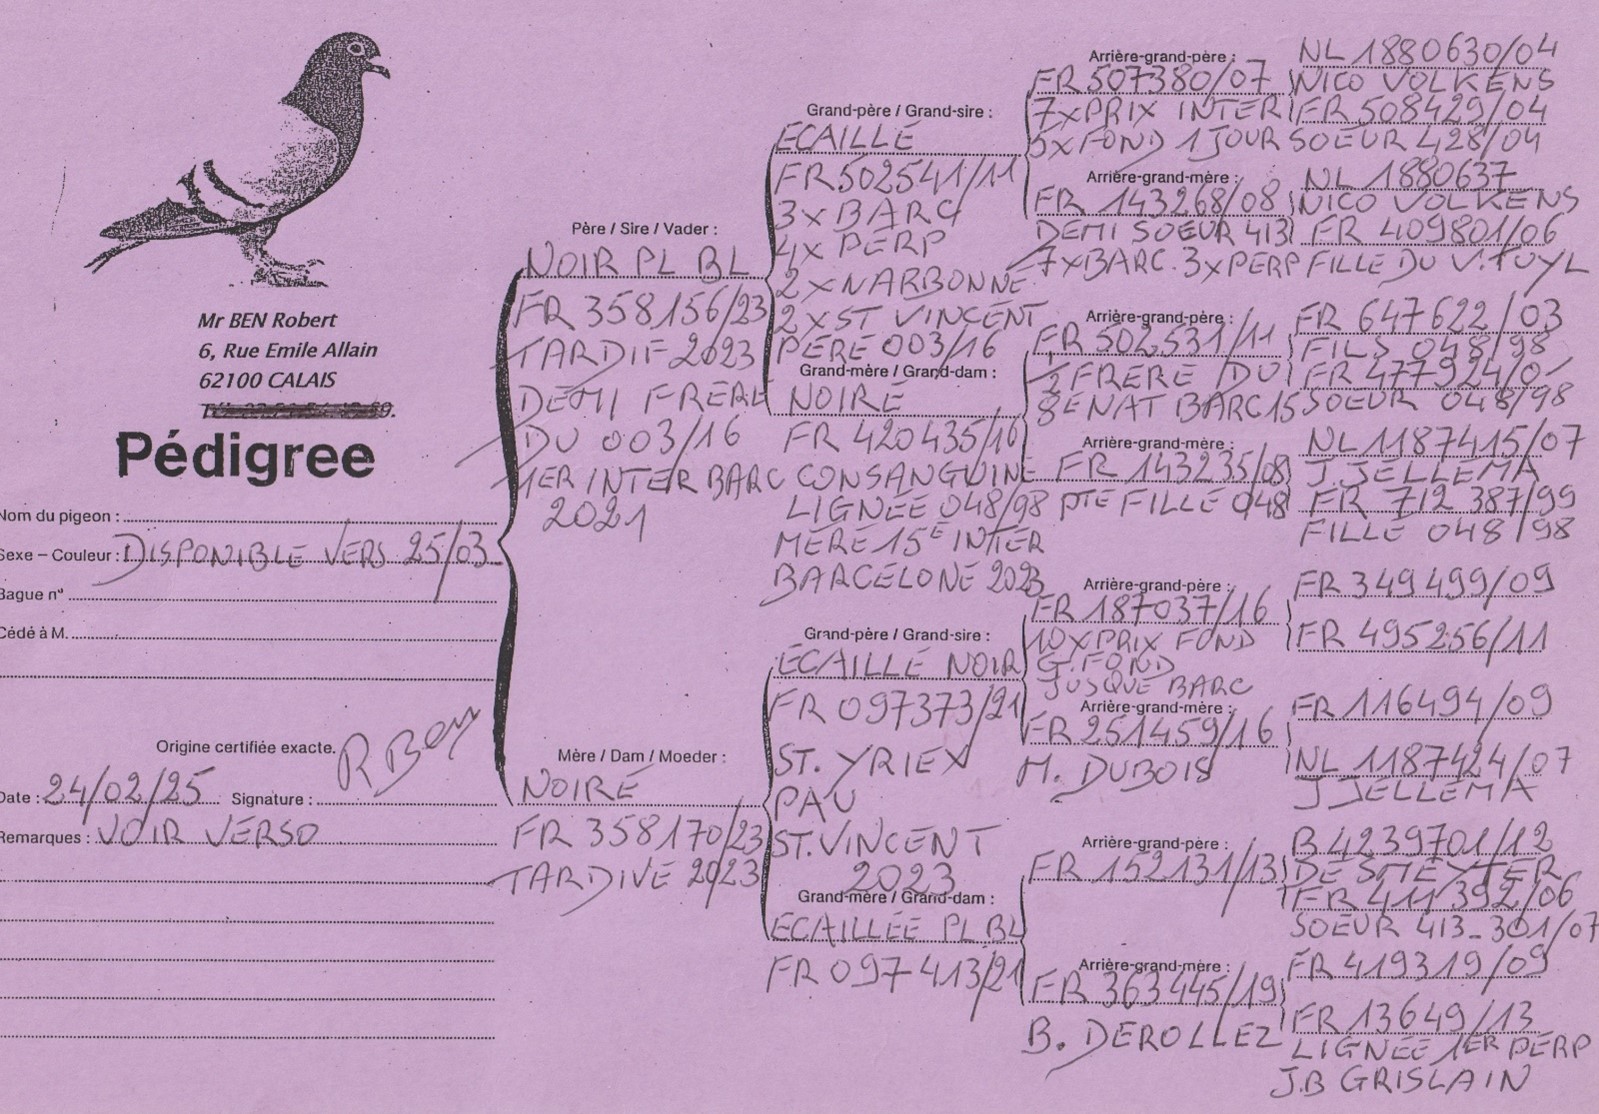 Mr BEN Robert
6, Rue Emile Allain
62100 CALAIS
Pédigree
Nom du pigeon :
Sexe – Couleur : DISPONIBLE VERS 25/03
Bague n°
Cédé à M.
Origine certifiée exacte.
Date : 24/02/25 Signature : R Ben
Remarques : VOIR VERSO
Père / Sire / Vader :
NOIR PL BL
FR 358156/23
TARDIF 2023
DEMI FRERE
DU 003/16
1ER INTER BARC
2021
Mère / Dam / Moeder :
NOIRE
FR 358170/23
TARDIVE 2023
Grand-père / Grand-sire :
ECAILLE
FR 502541/11
3x BARC
4x PERP
2 x NARBONNE
2 x ST VINCENT
PERE 003/16
Grand-mère / Grand-dam :
NOIRE
FR 420435/16
CONSANGUINE
LIGNEE 048/98
MERE 15E INTER
BARCELONE 2023
Grand-père / Grand-sire :
ECAILLE NOIR
FR 097373/21
ST. YRIEX
PAU
ST. VINCENT
2023
Grand-mère / Grand-dam :
ECAILLÉE PL BL
FR 097413/21
Arrière-grand-père :
FR 507380/07
7xPRIX INTER
5xFOND 1 JOUR
Arrière-grand-mère :
FR 143268/08
DEMI SOEUR 413
7xBARC. 3xPERP
Arrière-grand-père :
FR 502531/11
1/2 FRERE DU
8E NAT BARC 15
Arrière-grand-mère :
FR 143235/08
PTE FILLE 048
Arrière-grand-père :
FR 187037/16
10 x PRIX FOND
G. FOND
JUSQUE BARC
Arrière-grand-mère :
FR 251459/16
M. DUBOIS
Arrière-grand-père :
FR 152131/13
Arrière-grand-mère :
FR 363445/19
B. DEROLLEZ
NL 1880630/04
NICO VOLKENS
FR 508429/04
SOEUR 428/04
NL 1880637
NICO VOLKENS
FR 409801/06
FILLE DU V. TUYL
FR 647622/03
FILS 048/98
FR 477924/0
SOEUR 048/98
NL 1187415/07
J. JELLEMA
FR 712 387/99
FILLE 048/98
FR 349499/09
FR 495256/11
FR 116494/09
NL 1187424/07
J JELLEMA
B 4239701/12
DE SMEYTER
FR 411392/06
SOEUR 413-301/07
FR 419319/09
FR 13649/13
LIGNEE 1ER PERP
J.B GRISLAIN